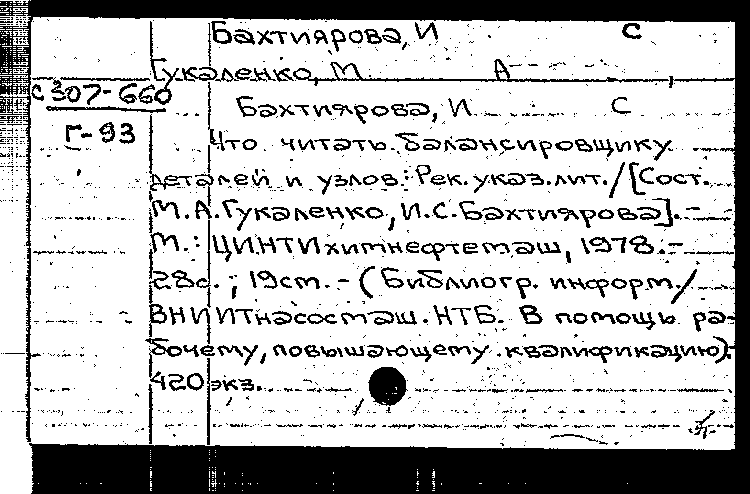 Бахтиярова, И С
Гукаленко, М А
с 307-660
Бахтиярова, И С
Г-93
Что читать балансировщику
деталей и узлов: Рек. указ. лит. / [Сост.
М.А. Гукаленко, И.С. Бахтиярова]. –
М.: ЦИНТИхимнефтемаш, 1978. –
28с. ; 19см. – (Библиогр. информ. /
ВНИИТнасосмаш. НТБ. В помощь ра-
бочему, повышающему квалификацию).
420 экз.